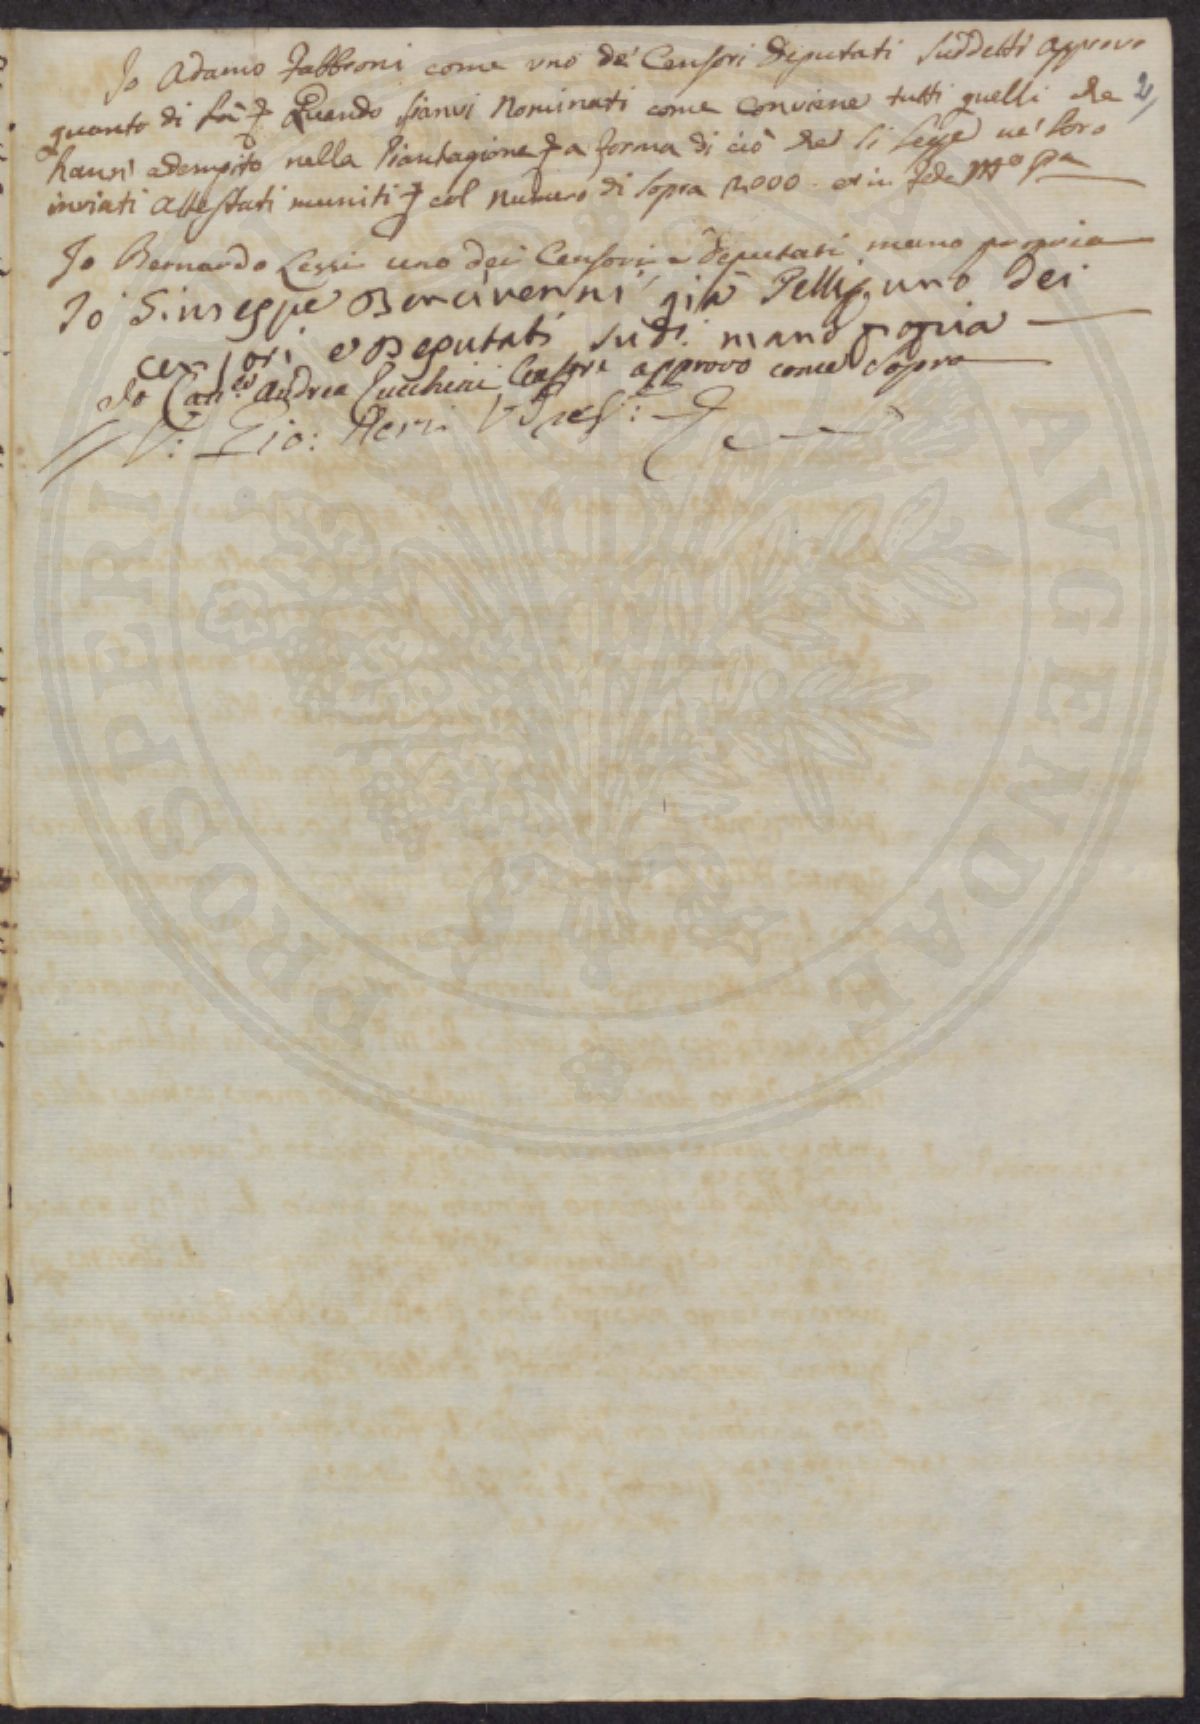 Io Adamo Fabbroni come uno de' Censori Deputati Suddetti approvo
quanto di Quando sianvi Nominati come conviene tutti quelli che
hanno adempito nella Piantagione a forma di ciò che si legge ne' loro
inviati Attestati muniti col numero di sopra 2000. et in fede Mo pa
2
Io Bernardo Lessi uno dei Censori e deputati mano propria
Io Giuseppe Bencivenni già Pelli, uno dei
censori, e Deputati sudi. mano propria
Io Can:co Andrea Zucchini Censore approvo come sopra
V: Gio: Neri V Pres:
PROSPERITATI AVGENDAE